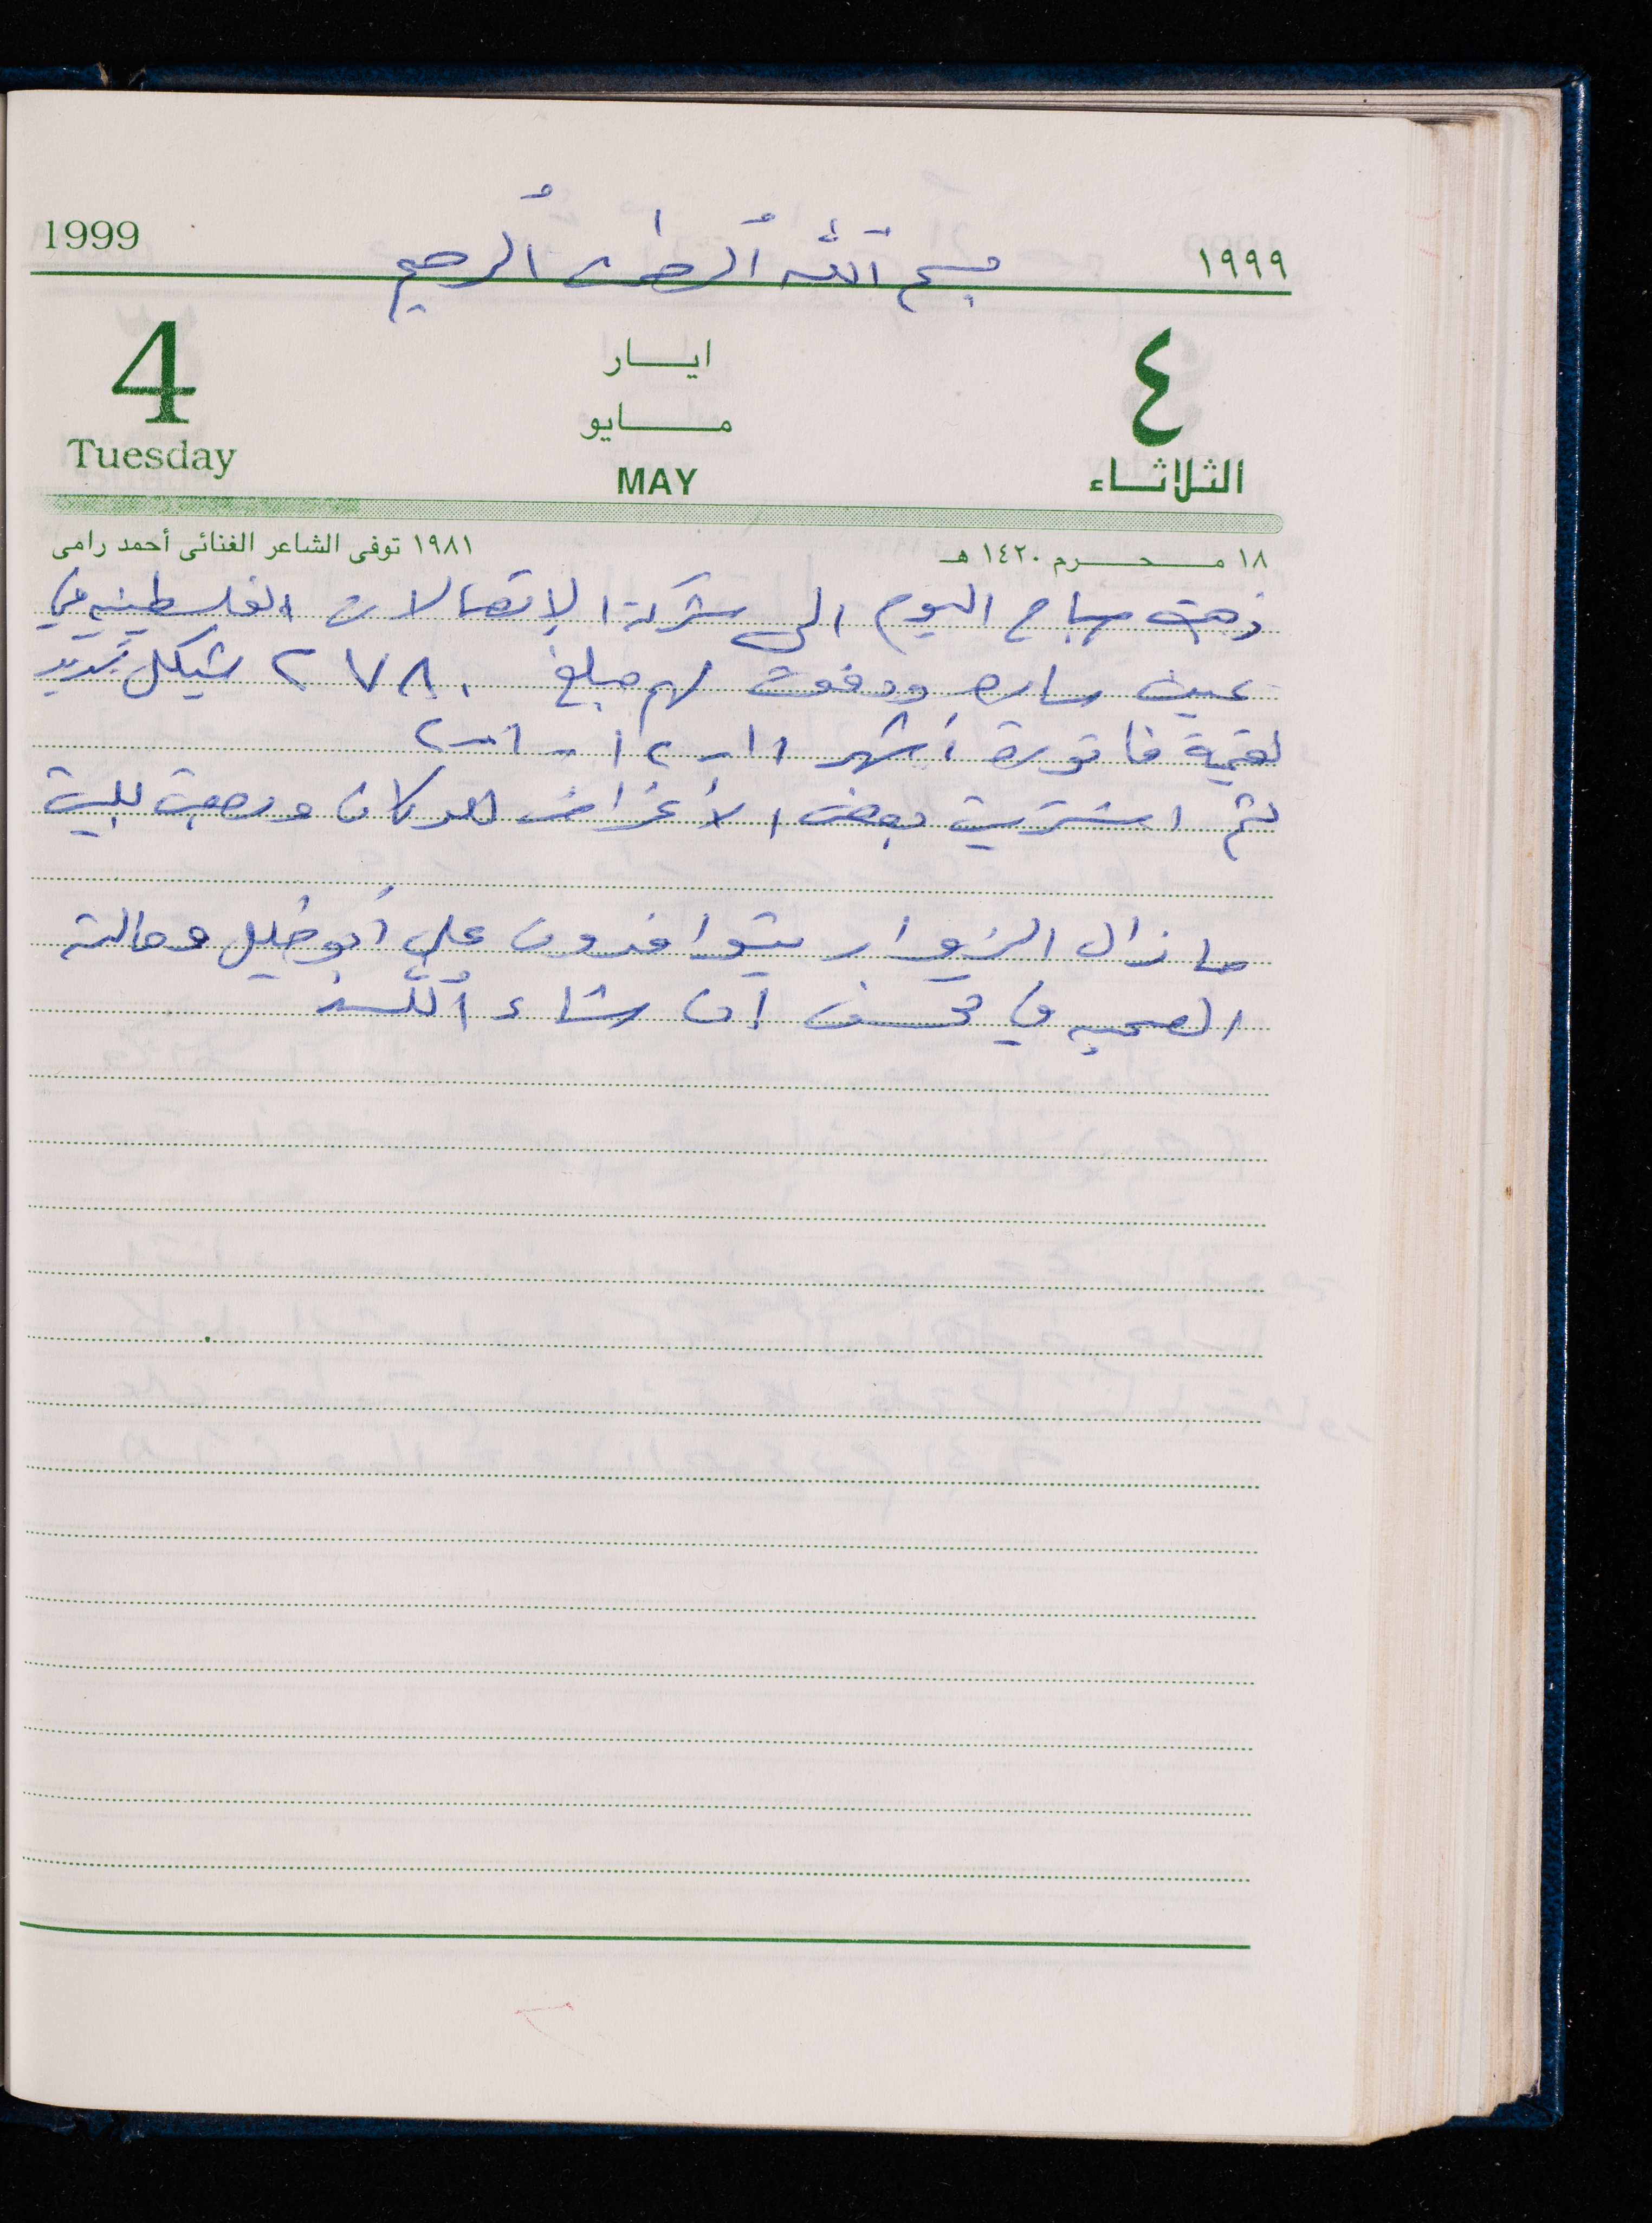 بسم الله الرحمن الرحيم
1999 ١٩٩٩
4 ايـــار ٤
مـــايو
Tuesday MAY الثلاثـاء
١٨ مـحـرم ١٤٢٠ هـ ١٩٨١ توفى الشاعر الغنائى أحمد رامى
ذهبت صباح اليوم الى شركة الإتصالات الفلسطينيه في
عين ساره ودفعت لهم مبلغ ٢٧٨٠ شيكل جديد
لقيمة فاتورة أشهر ١١-١٢-١-٢
ثم اشتريت بعض الأغراض للدكان ورجعت للبيت
ما زال الزوار يتوافدون على أبو خليل وحالته
الصحيه في تحسن إن شاء الله